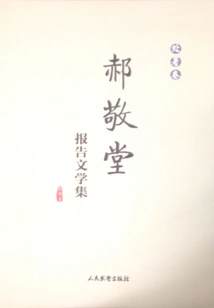 郝敬堂
报告文学集
人民武警出版社